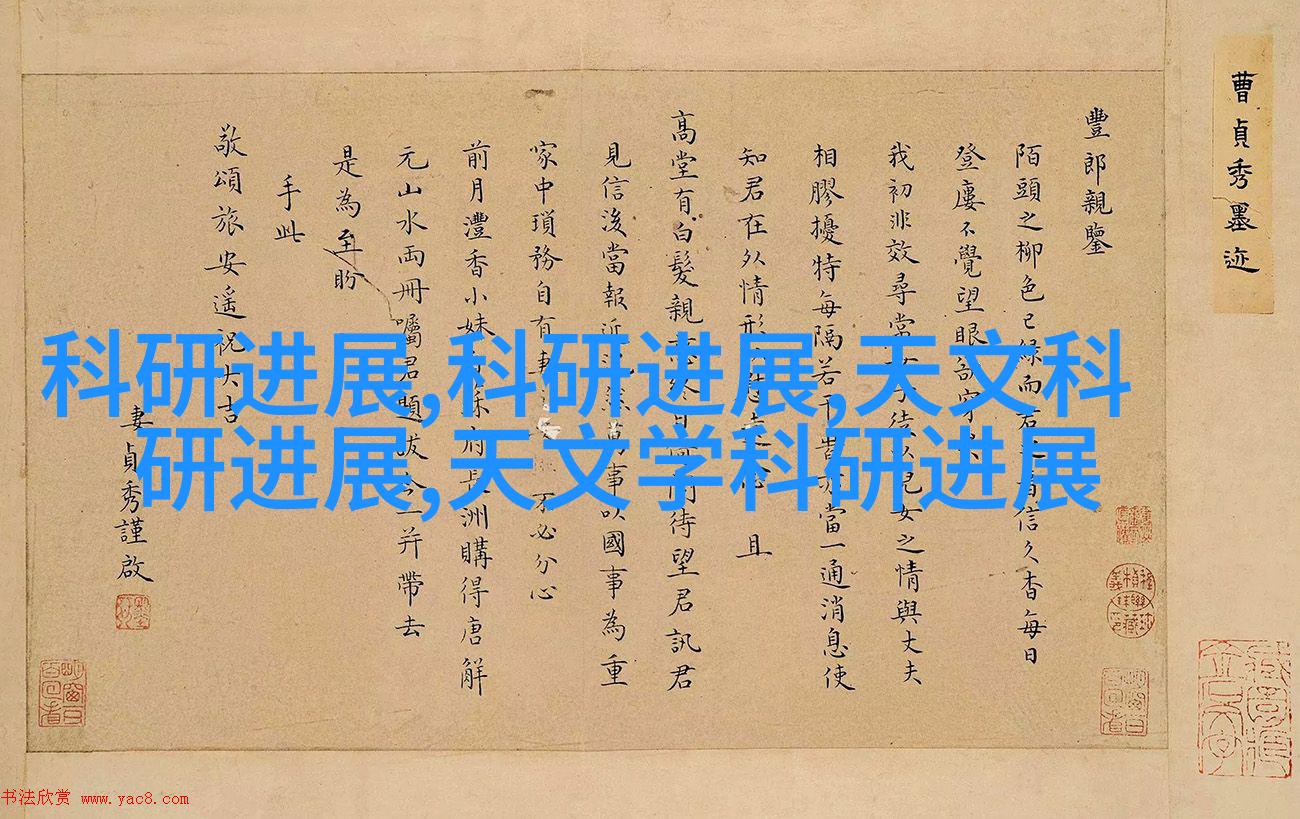 曹貞秀墨迹
豐郎親鑒
陌頭之柳色已綠而君信久杳每日
登廔不覺望眼穿
我初非效尋常以兒女之情與丈夫
相膠擾特每隔若干當一通消息使
知君在外情形且
高堂有白髮親終日待望君訊君
見信後當報近事以國事為重
家中瑣務自有妻不必分心
前月灃香小妹蘇府長洲購得唐解
元山水兩冊囑君題跋今一并帶去
是為至盼
手此
敬頌旅安遙祝大吉
妻貞秀謹啟
科研进展,科研进展,天文科
研进展,天文学科研进展
书法欣赏 www.yac8.com